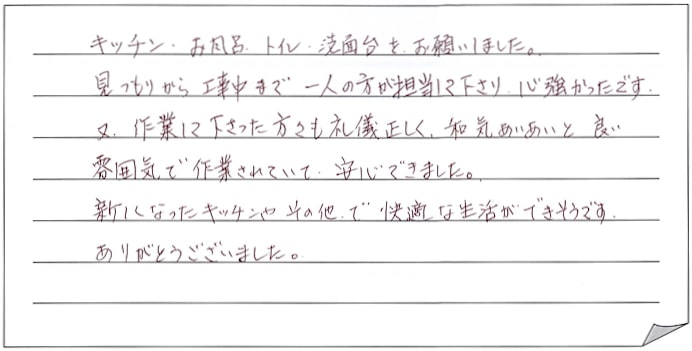 キッチン・お風呂、トイレ・洗面台を、お願いしました。
見つもりから工事中まで一人の方が担当して下さり、心強かったです。
又、作業して下さった方々も礼儀正しく、和気あいあいと良い
雰囲気で作業されていて、安心できました。
新しくなったキッチンやその他で快適な生活ができそうです。
ありがとうございました。